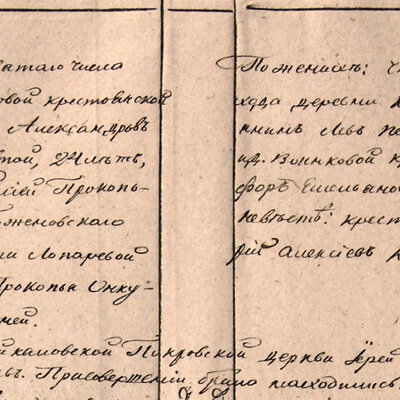 ятаго числа
овой крестьянской
Александръ
той, 24 лѣтъ,
Прокопь-
оженовскаго
ни Лопаревой
Прокопья Онку-
ней.
По женихѣ:
хода деревни
нинъ Левъ
ид. Воинковой
форъ Емельяно
невѣстѣ: крест
рій Алексіевъ
Покровской церкви Іерей
въ. При совершеніи брака находились